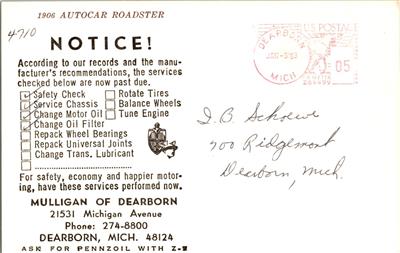 1906 AUTOCAR ROADSTER
4710
NOTICE!
According to our records and the manu-
facturer's recommendations, the services
checked below are now past due.
Safety Check
Service Chassis
Change Motor Oil
Change Oil Filter
Repack Wheel Bearings
Repack Universal Joints
Change Trans. Lubricant
Rotate Tires
Balance Wheels
Tune Engine
For safety, economy and happier motor-
ing, have these services performed now.
MULLIGAN OF DEARBORN
21531 Michigan Avenue
Phone: 274-8800
DEARBORN, MICH. 48124
ASK FOR PENNZOIL WITH Z-7
DEARBORN
MICH
U.S. POSTAGE
05
J.B Schoewe
700 Ridgemont
Dearborn, Mich.